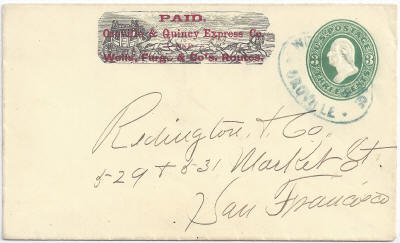 PAID.
Oroville & Quincy Express Co.
AND
Wells, Farg. & Co's. Routes.
U.S. POSTAGE
3 3
THREE CENTS
OROVILLE
Redington & Co.
529 & 531 Market St.
San Francisco